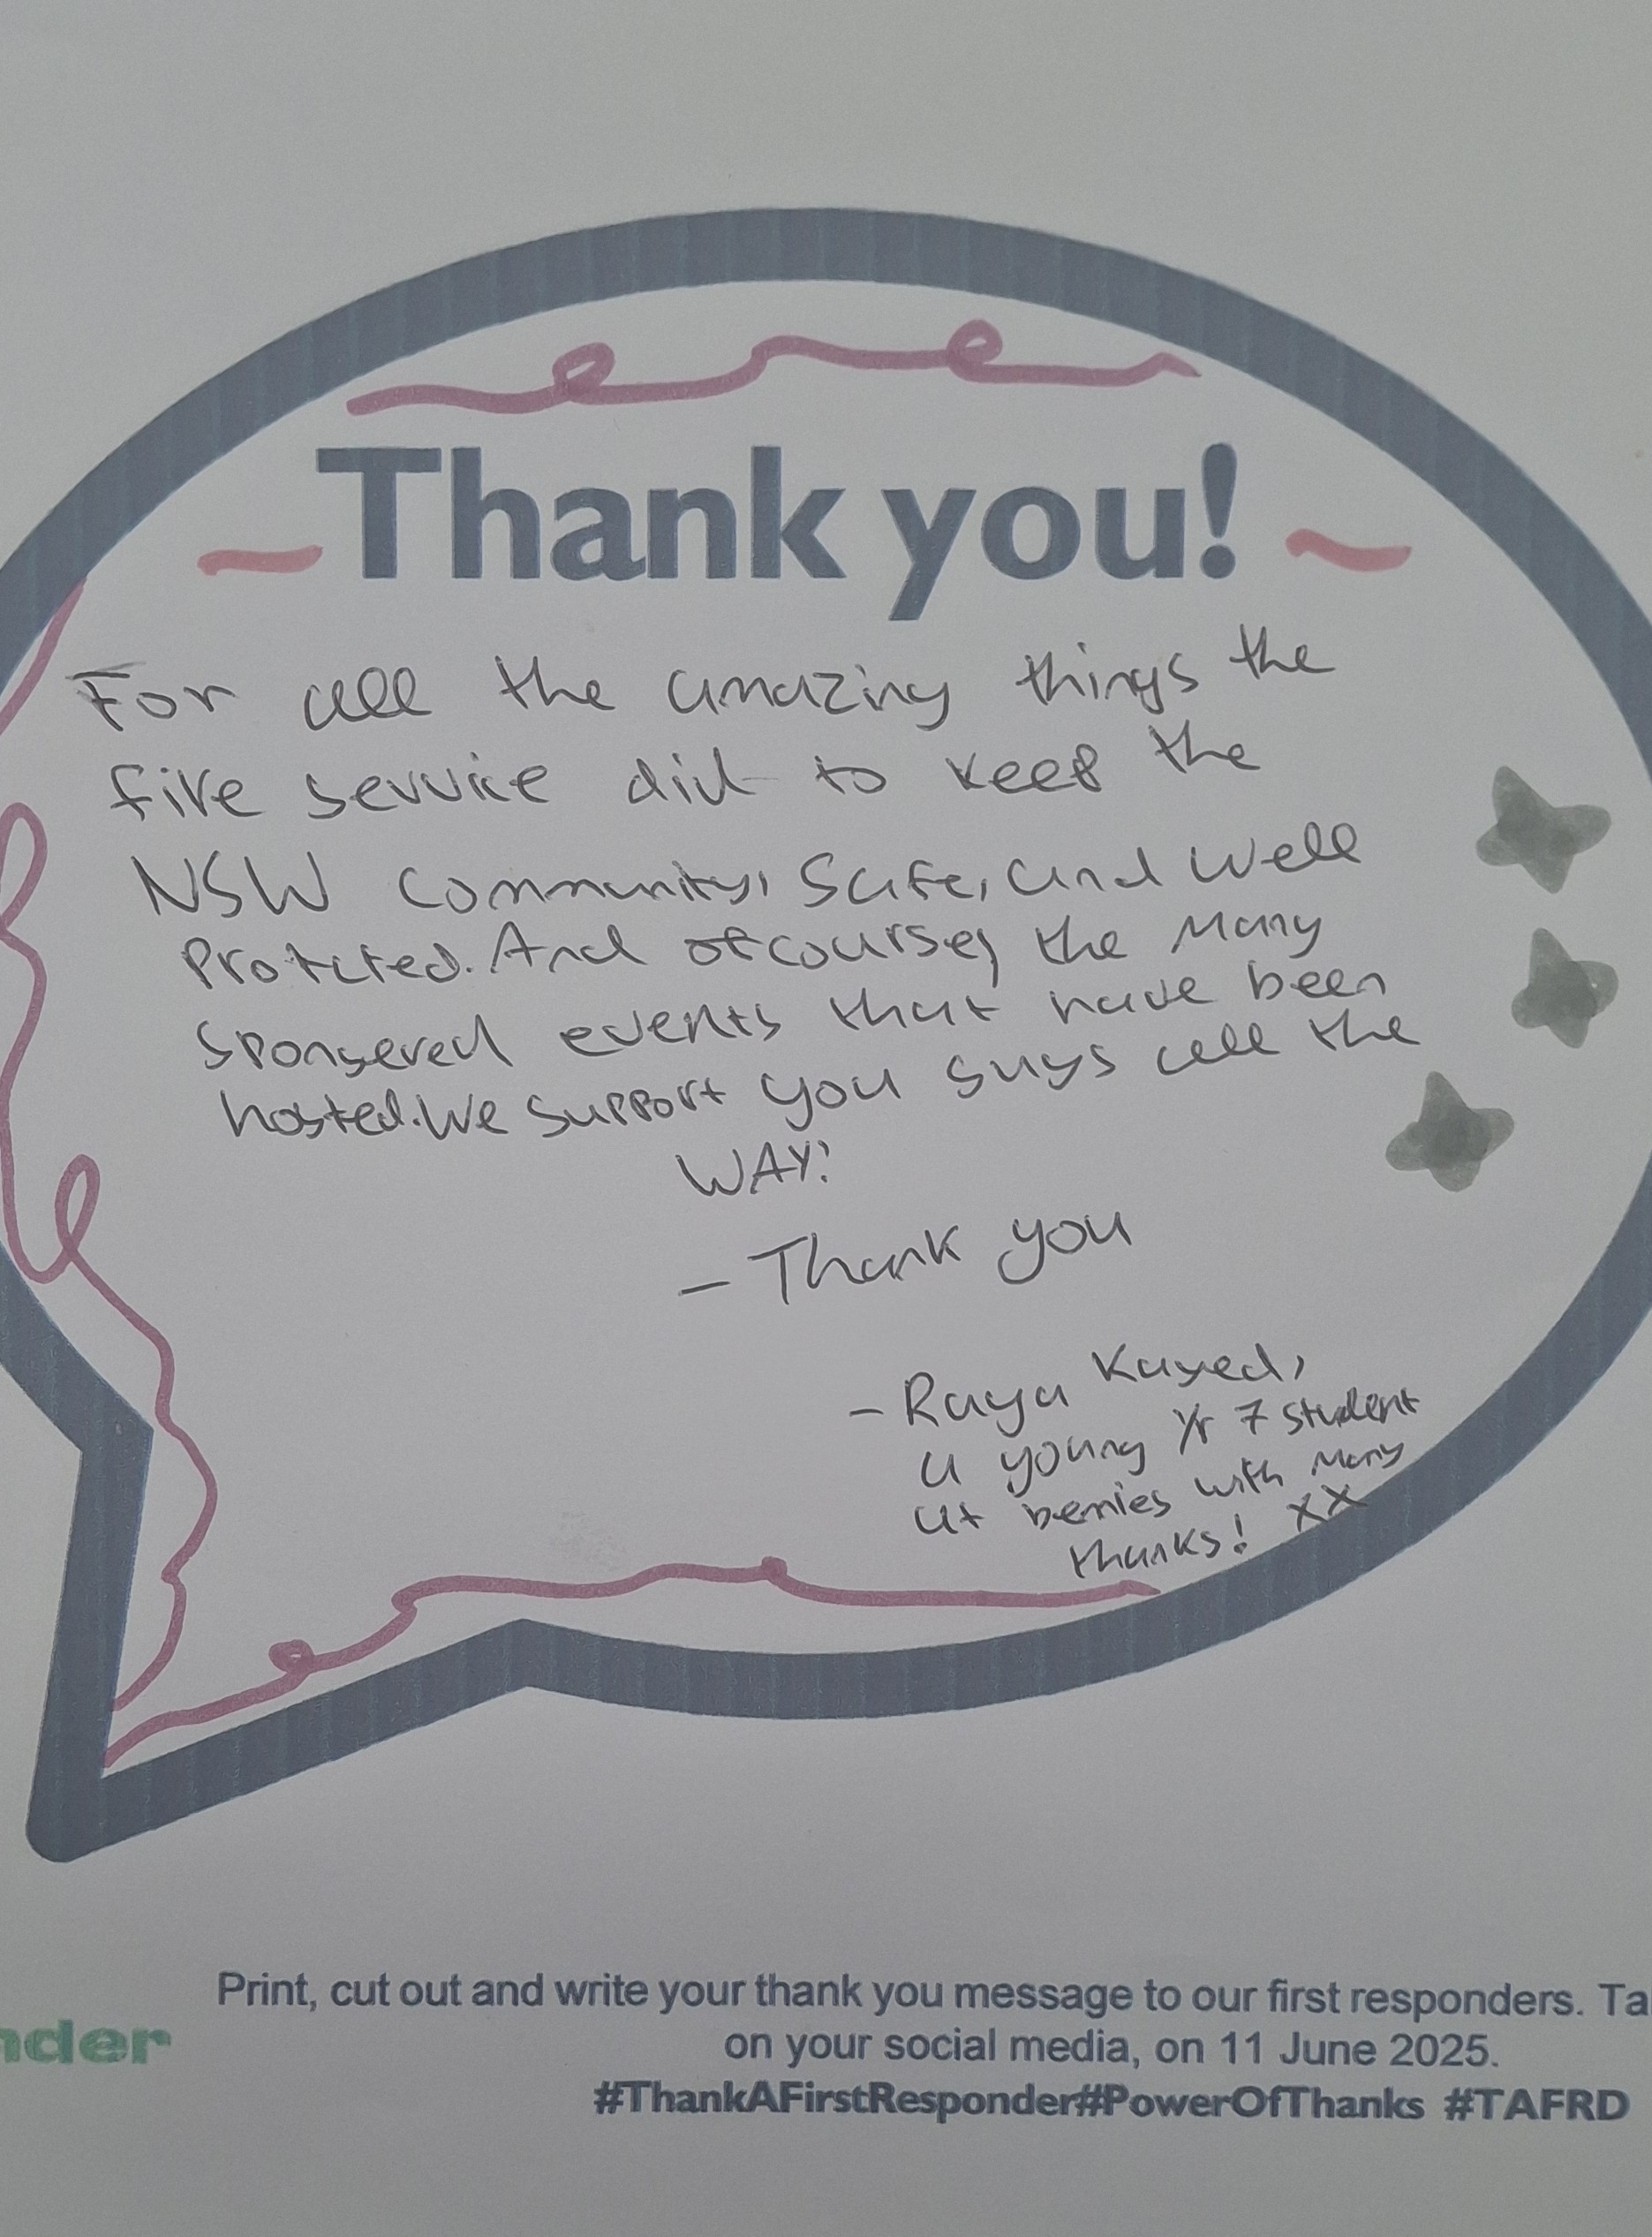 Thank you!
For all the amazing things the
fire service did to keep the
NSW community, safe, and well
protcted. And ofcourse, the many
sponsered events that have been
hosted. We support you guys all the
WAY!
- Thank you
- Raya Kayed,
a young Yr 7 student
at bernies with many
thanks! xx
Print, cut out and write your thank you message to our first responders. Ta
nder
on your social media, on 11 June 2025.
#ThankAFirstResponder#PowerOfThanks #TAFRD